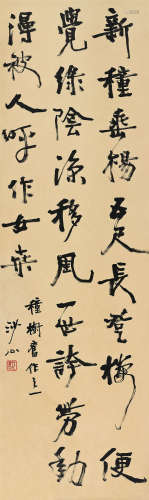 新種垂楊五尺長登樓便
覺綠陰涼移風一世誇勞動
浔被人呼作女桑
種樹舊作之一
沙沁